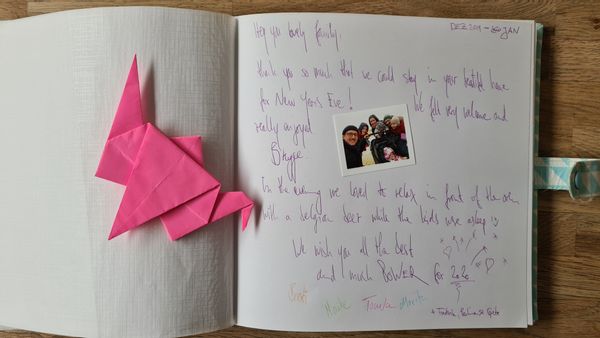 Hey you lovely family,
DEZ 2019 - JAN
thank you so much that we could stay in your beautiful home
for New Years Eve! We felt very welcome and
really enjoyed
Brügge.
In the evening we loved to relax in front of the oven
with a belgian beer while the kids were asleep
We wish you all the best
and much POWER for 2020
Moritz